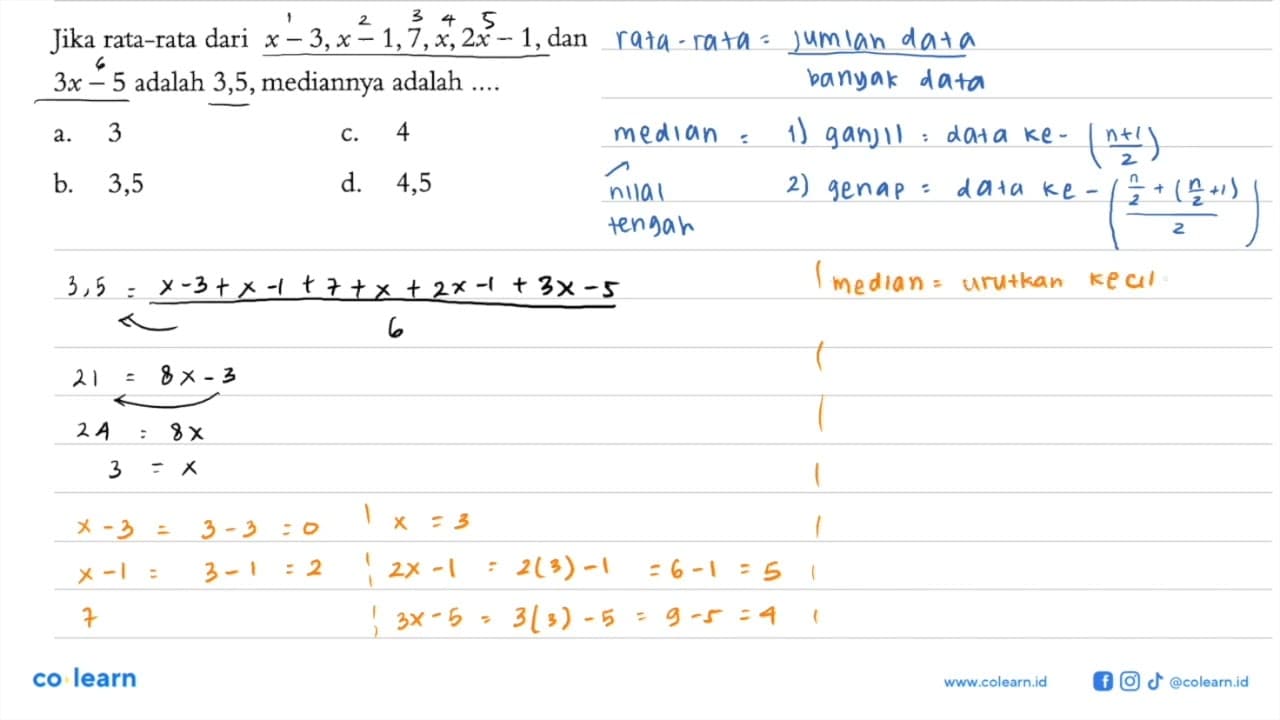 1 2 3 4 5
Jika rata-rata dari x − 3, x − 1, 7, x, 2x − 1, dan
6
3x − 5 adalah 3,5, mediannya adalah ....
a. 3
c. 4
b. 3,5
d. 4,5
rata-rata = jumlah data / banyak data
median = 1) ganjil : data ke- ((n+1)/2)
nilai tengah
2) genap = data ke- ((n/2 + (n/2 +1))/2)
3,5 = (x-3 + x-1 + 7 + x + 2x-1 + 3x-5) / 6
21 = 8x - 3
24 = 8x
3 = x
x-3 = 3-3 = 0
x-1 = 3-1 = 2
7
x = 3
2x-1 = 2(3)-1 = 6-1 = 5
3x-5 = 3(3)-5 = 9-5 = 4
median = urutkan kecil
co learn
www.colearn.id
@colearn.id